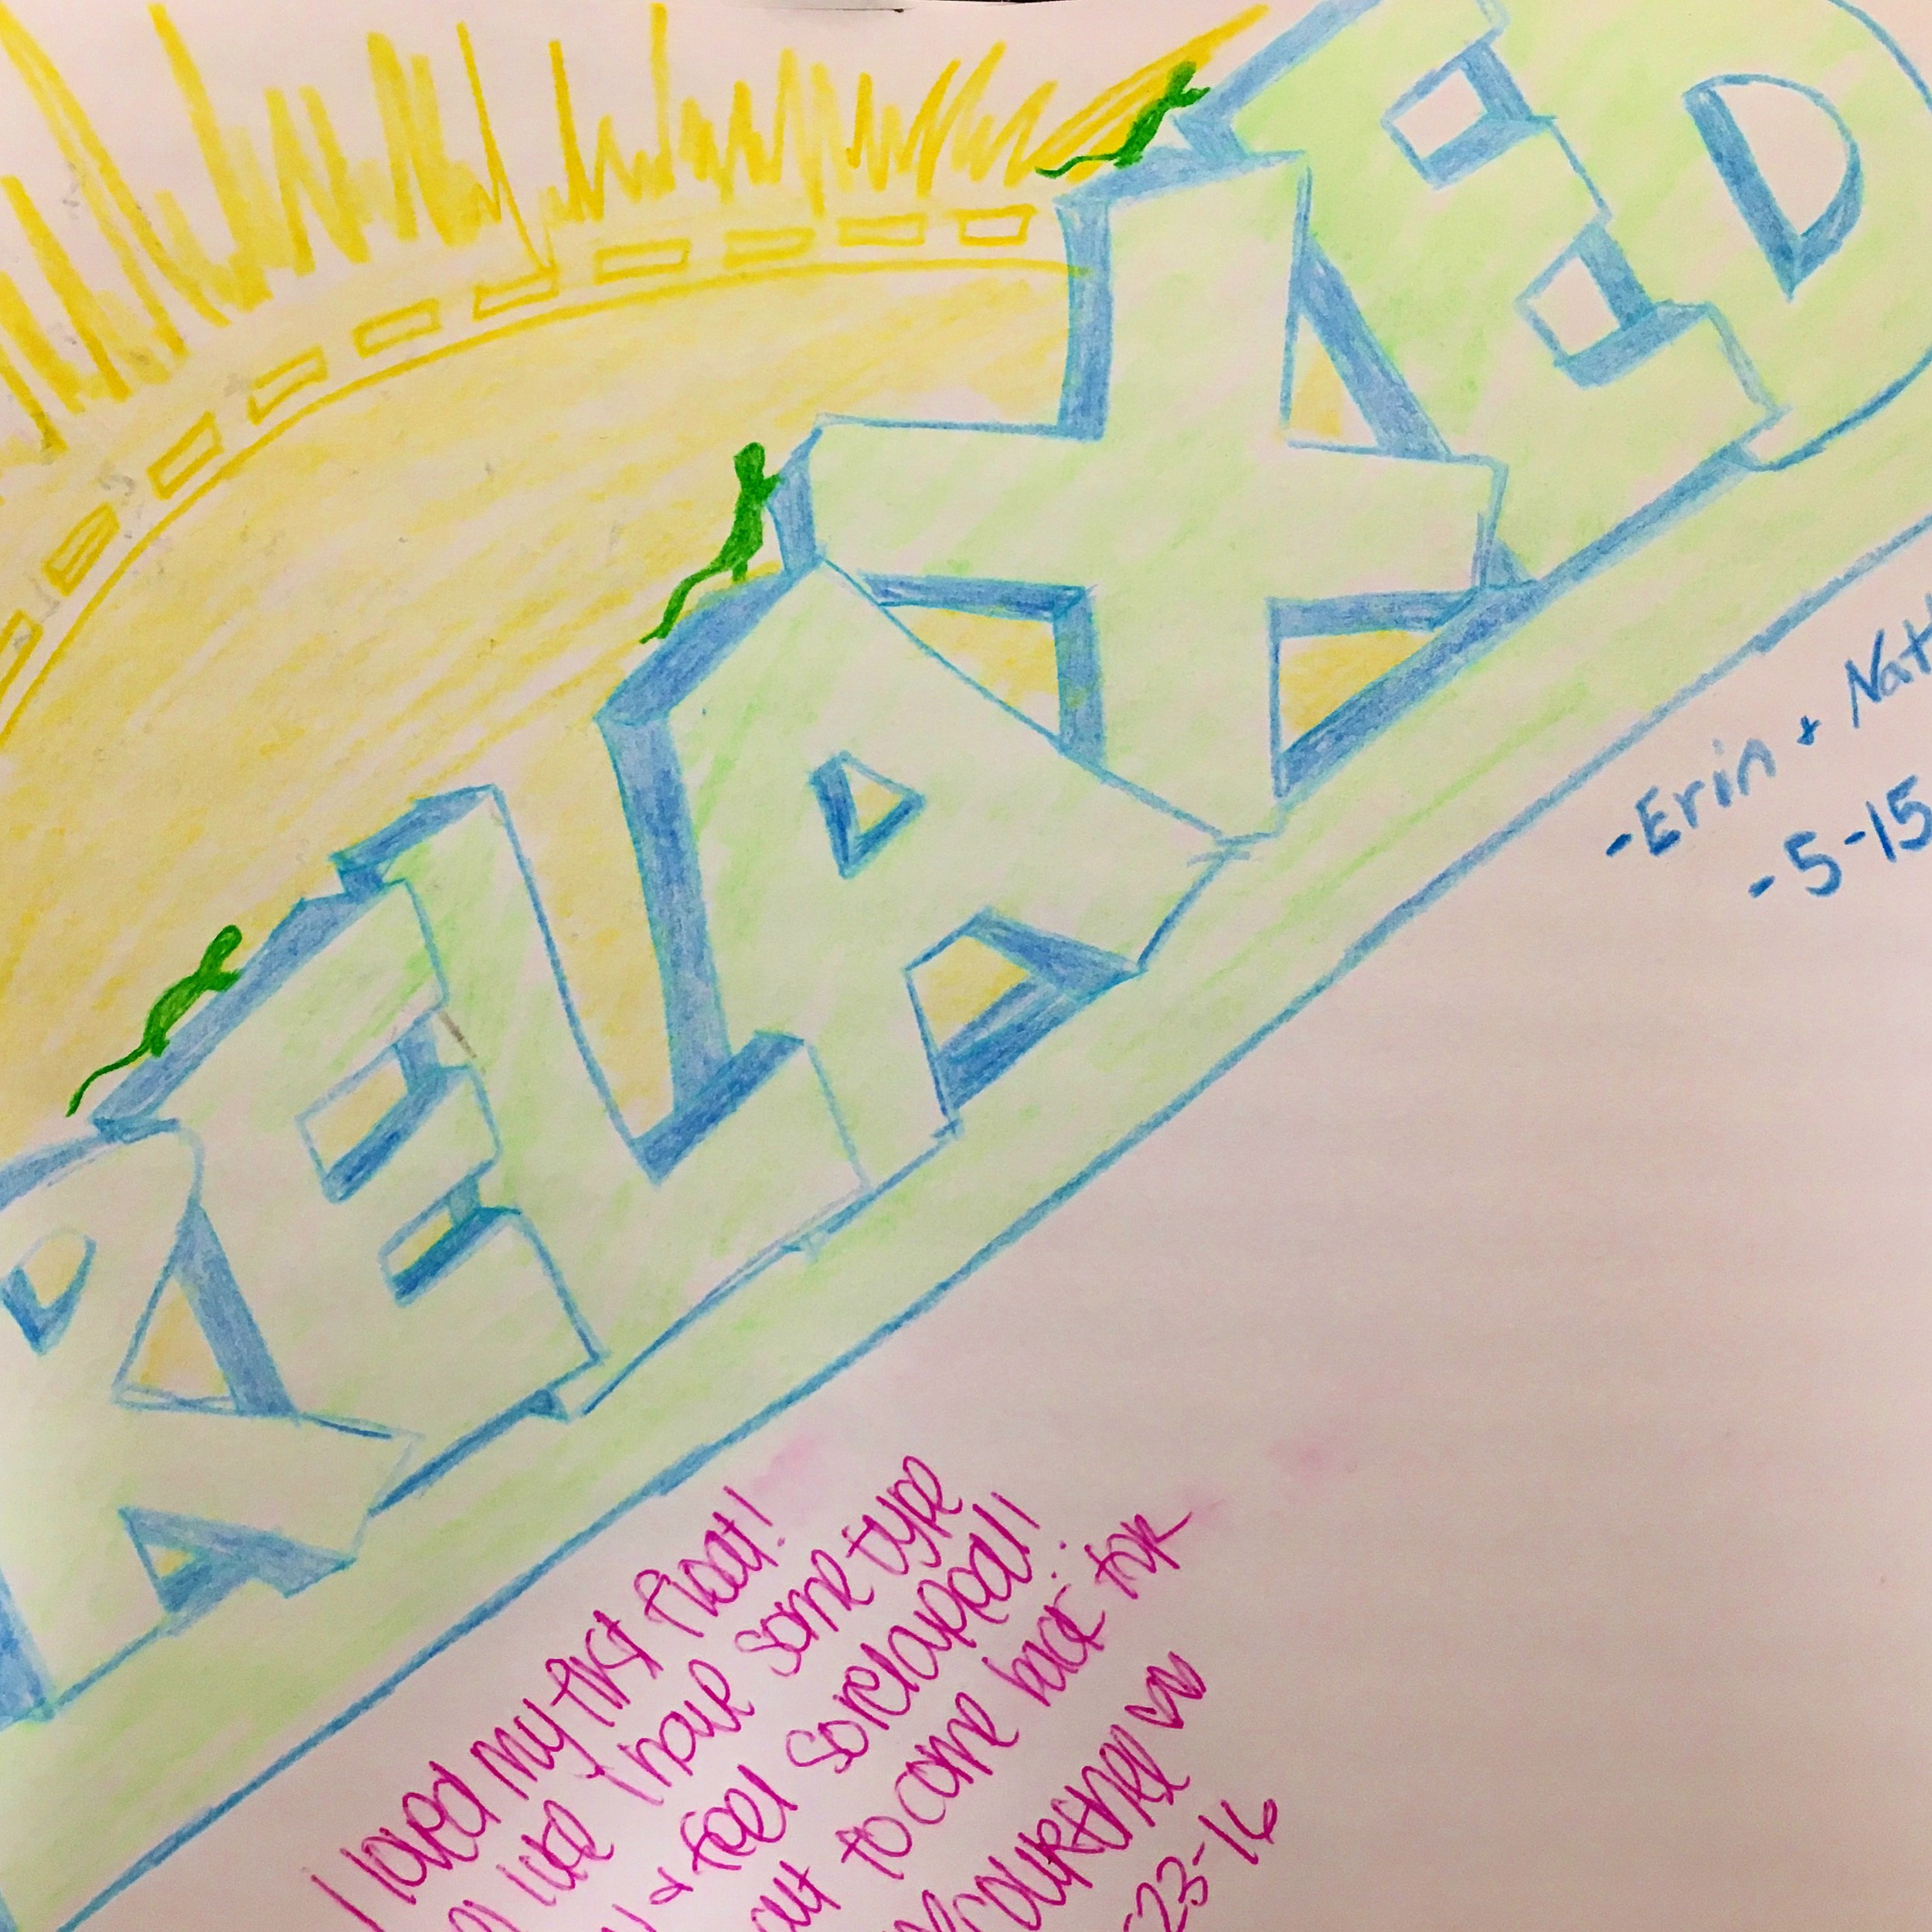 RELAXED
-Erin + Nat
-5-15
I loved my first float!
like I have some type
& feel so relaxed!!
to come back for
23-16